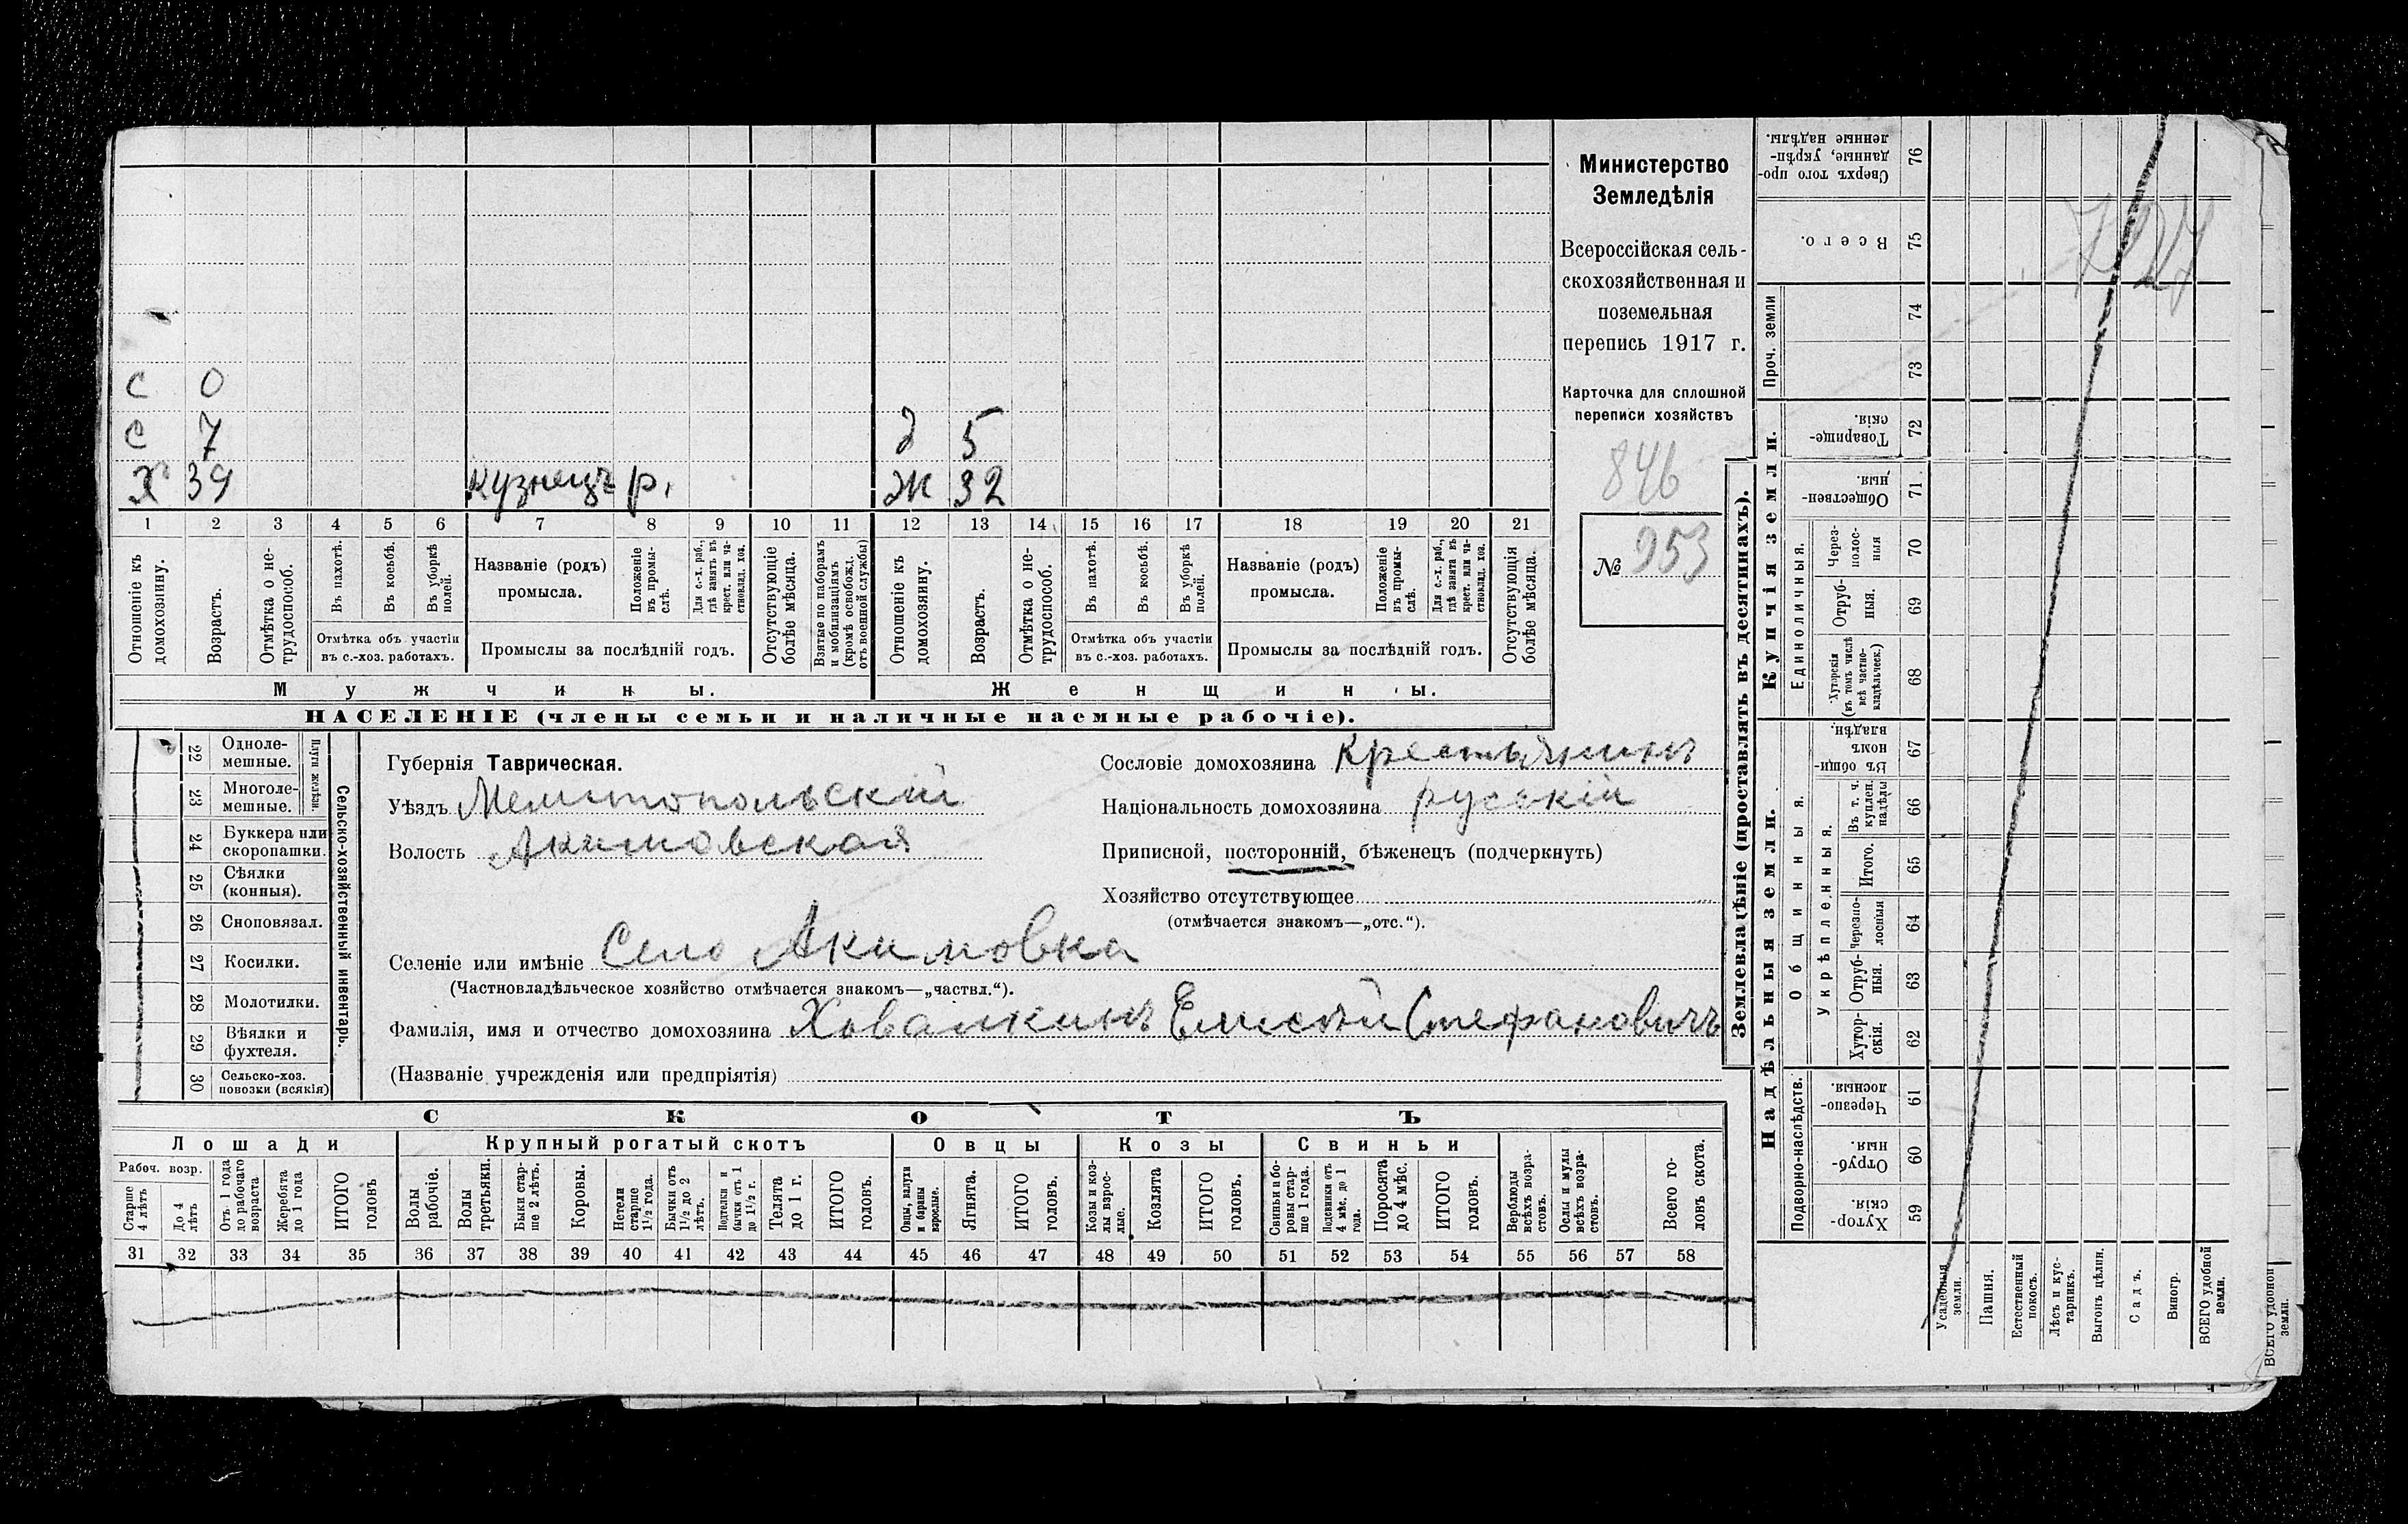 Министерство
Земледѣлія
Всероссійская сель-
скохозяйственная и
поземельная
перепись 1917 г.
Карточка для сплошной
переписи хозяйствъ
846
№ 953
с 0
с 7 д 5
х 39 кузнецъ р. ж 32
1 2 3 4 5 6 7 8 9 10 11 12 13 14 15 16 17 18 19 20 21
Отношеніе къ домохозяину.
Возрастъ.
Отмѣтка о не-
трудоспособ.
Въ пахотѣ.
Въ косьбѣ.
Въ уборкѣ полей.
Отмѣтка объ участіи
въ с.-хоз. работахъ.
Названіе (родъ)
промысла.
Положеніе въ промы-
слѣ.
Для с.-х. раб.,
гдѣ занятъ въ
крест. или ча-
стновлад. хоз.
Промыслы за послѣдній годъ.
Отсутствующіе
болѣе мѣсяца.
Взятые по наборамъ
и мобилизаціямъ
(кромѣ освобожд.
отъ военной службы)
Отношеніе къ
домохозяину.
Возрастъ.
Отмѣтка о не-
трудоспособ.
Въ пахотѣ.
Въ косьбѣ.
Въ уборкѣ
полей.
Отмѣтка объ участіи
въ с.-хоз. работахъ.
Названіе (родъ)
промысла.
Положеніе
въ промы-
слѣ.
Для с.-х. раб.,
гдѣ занята въ
крест. или ча-
стновлад. хоз.
Промыслы за послѣдній годъ.
Отсутствующія
болѣе мѣсяца.
Мужчины.
Женщины.
НАСЕЛЕНІЕ (члены семьи и наличные наемные рабочіе).
22 Одноле-
мешные.
23 Многоле-
мешные.
Плуги желѣзн.
24 Буккера или
скоропашки.
25 Сѣялки
(конныя).
26 Сноповязал.
27 Косилки.
28 Молотилки.
29 Вѣялки и
фухтеля.
30 Сельско-хоз.
повозки (всякія)
Сельско-хозяйственный инвентарь.
Губернія Таврическая.
Уѣздъ Мелитопольскій
Волость Акимовская
Сословіе домохозяина крестьянинъ
Національность домохозяина русскій
Приписной, посторонній, бѣженецъ (подчеркнуть)
Хозяйство отсутствующее
(отмѣчается знакомъ—„отс.“).
Селеніе или имѣніе Село Акимовка
(Частновладѣльческое хозяйство отмѣчается знакомъ—„частвл.“).
Фамилія, имя и отчество домохозяина Ховалкинъ Елисѣй Стефановичъ
(Названіе учрежденія или предпріятія)
СКОТЪ
Лошади
Крупный рогатый скотъ
Овцы
Козы
Свиньи
Рабоч. возр.
Старше
4 лѣтъ
До 4
лѣтъ
Отъ 1 года
до рабочаго
возраста
Жеребята
до 1 года
ИТОГО
головъ
Волы
рабочіе.
Волы
третьяки.
Быки стар-
ше 2 лѣтъ.
Коровы.
Нетели
старше
1½ года.
Бычки отъ
1½ до 2
лѣтъ.
Подтелки и
бычки отъ 1
до 1½ г.
Телята
до 1 г.
ИТОГО
головъ.
Овцы, валухи
и бараны
взрослые.
Ягнята.
ИТОГО
головъ.
Козы и коз-
лы взрос-
лые.
Козлята
ИТОГО
головъ.
Свиньи и бо-
ровы стар-
ше 1 года.
Подсвинки отъ
4 мѣс. до 1
года.
Поросята
до 4 мѣс.
ИТОГО
головъ.
Верблюды
всѣхъ возра-
стовъ.
Ослы и мулы
всѣхъ возра-
стовъ.
Всего го-
ловъ скота.
31 32 33 34 35 36 37 38 39 40 41 42 43 44 45 46 47 48 49 50 51 52 53 54 55 56 57 58
Землевладѣніе (проставлять въ десятинахъ).
Надѣльныя земли.
Купчія земли.
Проч. земли
Подворно-наслѣдств.
Общинныя.
Укрѣпленныя.
Единоличныя.
Сверхъ того про-
данные, укрѣп-
ленные надѣлы.
76
Всего.
75
74
73
Товарище-
скія.
72
Обществен-
ныя.
71
Через-
полос-
ныя
70
Отруб-
ныя.
69
Хуторскія
(въ томъ числѣ
всѣ частно-
владѣльческ.)
68
Въ общин-
номъ
владѣн.
67
Въ т. ч.
куплен.
надѣлы
66
Итого.
65
Черезпо-
лосныя
64
Отруб-
ныя.
63
Хутор-
скія.
62
Черезпо-
лосныя.
61
Отруб-
ныя.
60
Хутор-
скія.
59
Усадебныя
земли.
Пашня.
Естественный
покосъ.
Лѣсъ и кус-
тарникъ.
Выгонъ цѣлин.
Садъ.
Виногр.
ВСЕГО удобной
земли.
ВСЕГО удобной
земли.